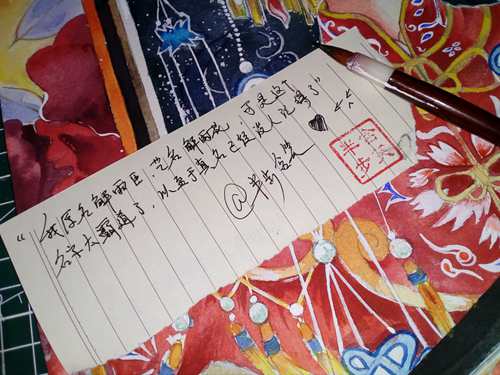 “我原名解雨臣，艺名解语花，可是这个
名字太霸道了，以至于真名已经没人记得了”
@半步
半步